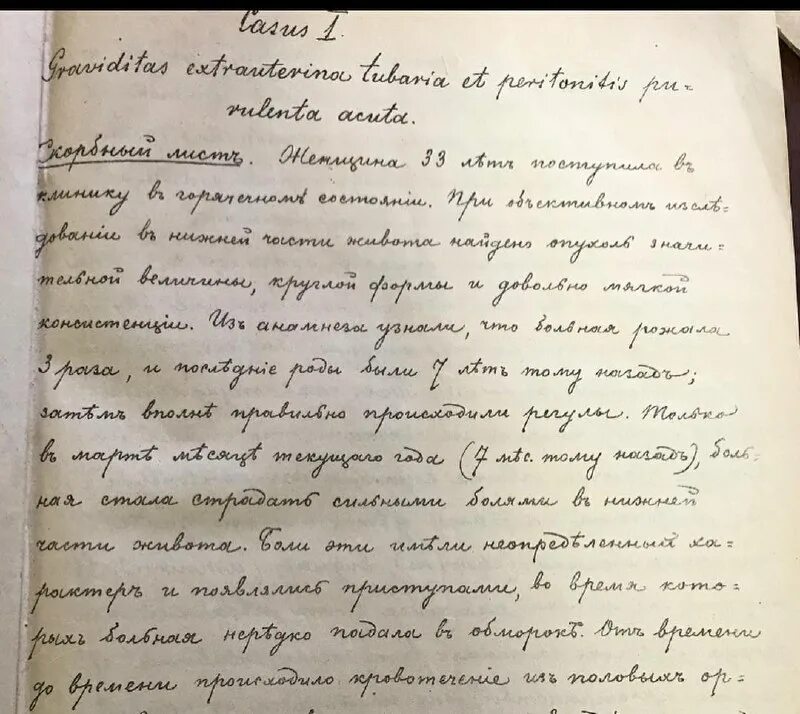 Casus I.
Graviditas extrauterina tubaria et peritonitis pu-
rulenta acuta.
Скорбный листъ. Женщина 33 лѣтъ поступила въ
клинику въ горячечномъ состояніи. При объективномъ изслѣ-
дованіи въ нижней части живота найдено опухоль значи-
тельной величины, круглой формы и довольно мягкой
консистенціи. Изъ анамнеза узнали, что больная рожала
3 раза, и послѣдніе роды были 7 лѣтъ тому назадъ;
затѣмъ вполнѣ правильно происходили регулы. Только
въ мартѣ мѣсяцѣ текущаго года (7 мѣс. тому назадъ), боль-
ная стала страдать сильными болями въ нижней
части живота. Боли эти имѣли неопредѣленный ха-
рактеръ и появлялись приступами, во время кото-
рыхъ больная нерѣдко падала въ обморокъ. Отъ времени
до времени происходило кровотеченіе изъ половыхъ ор-